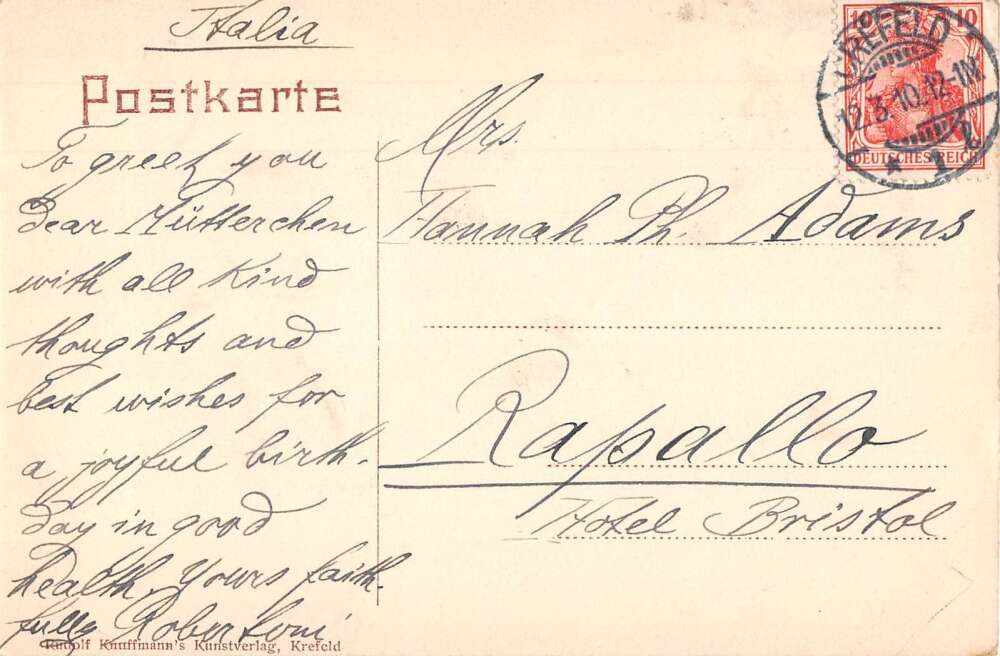 Italia
Postkarte
To greet you
dear Mütterchen
with all kind
thoughts and
best wishes for
a joyful birth-
day in good
health. Yours faith-
fully
Mrs.
Hannah Ph. Adams
Rapallo
Hotel Bristol
10 10
DEUTSCHES REICH
CREFELD
12.3.10.12-1N.
* 1
Rudolf Knuffmann's Kunstverlag, Krefeld